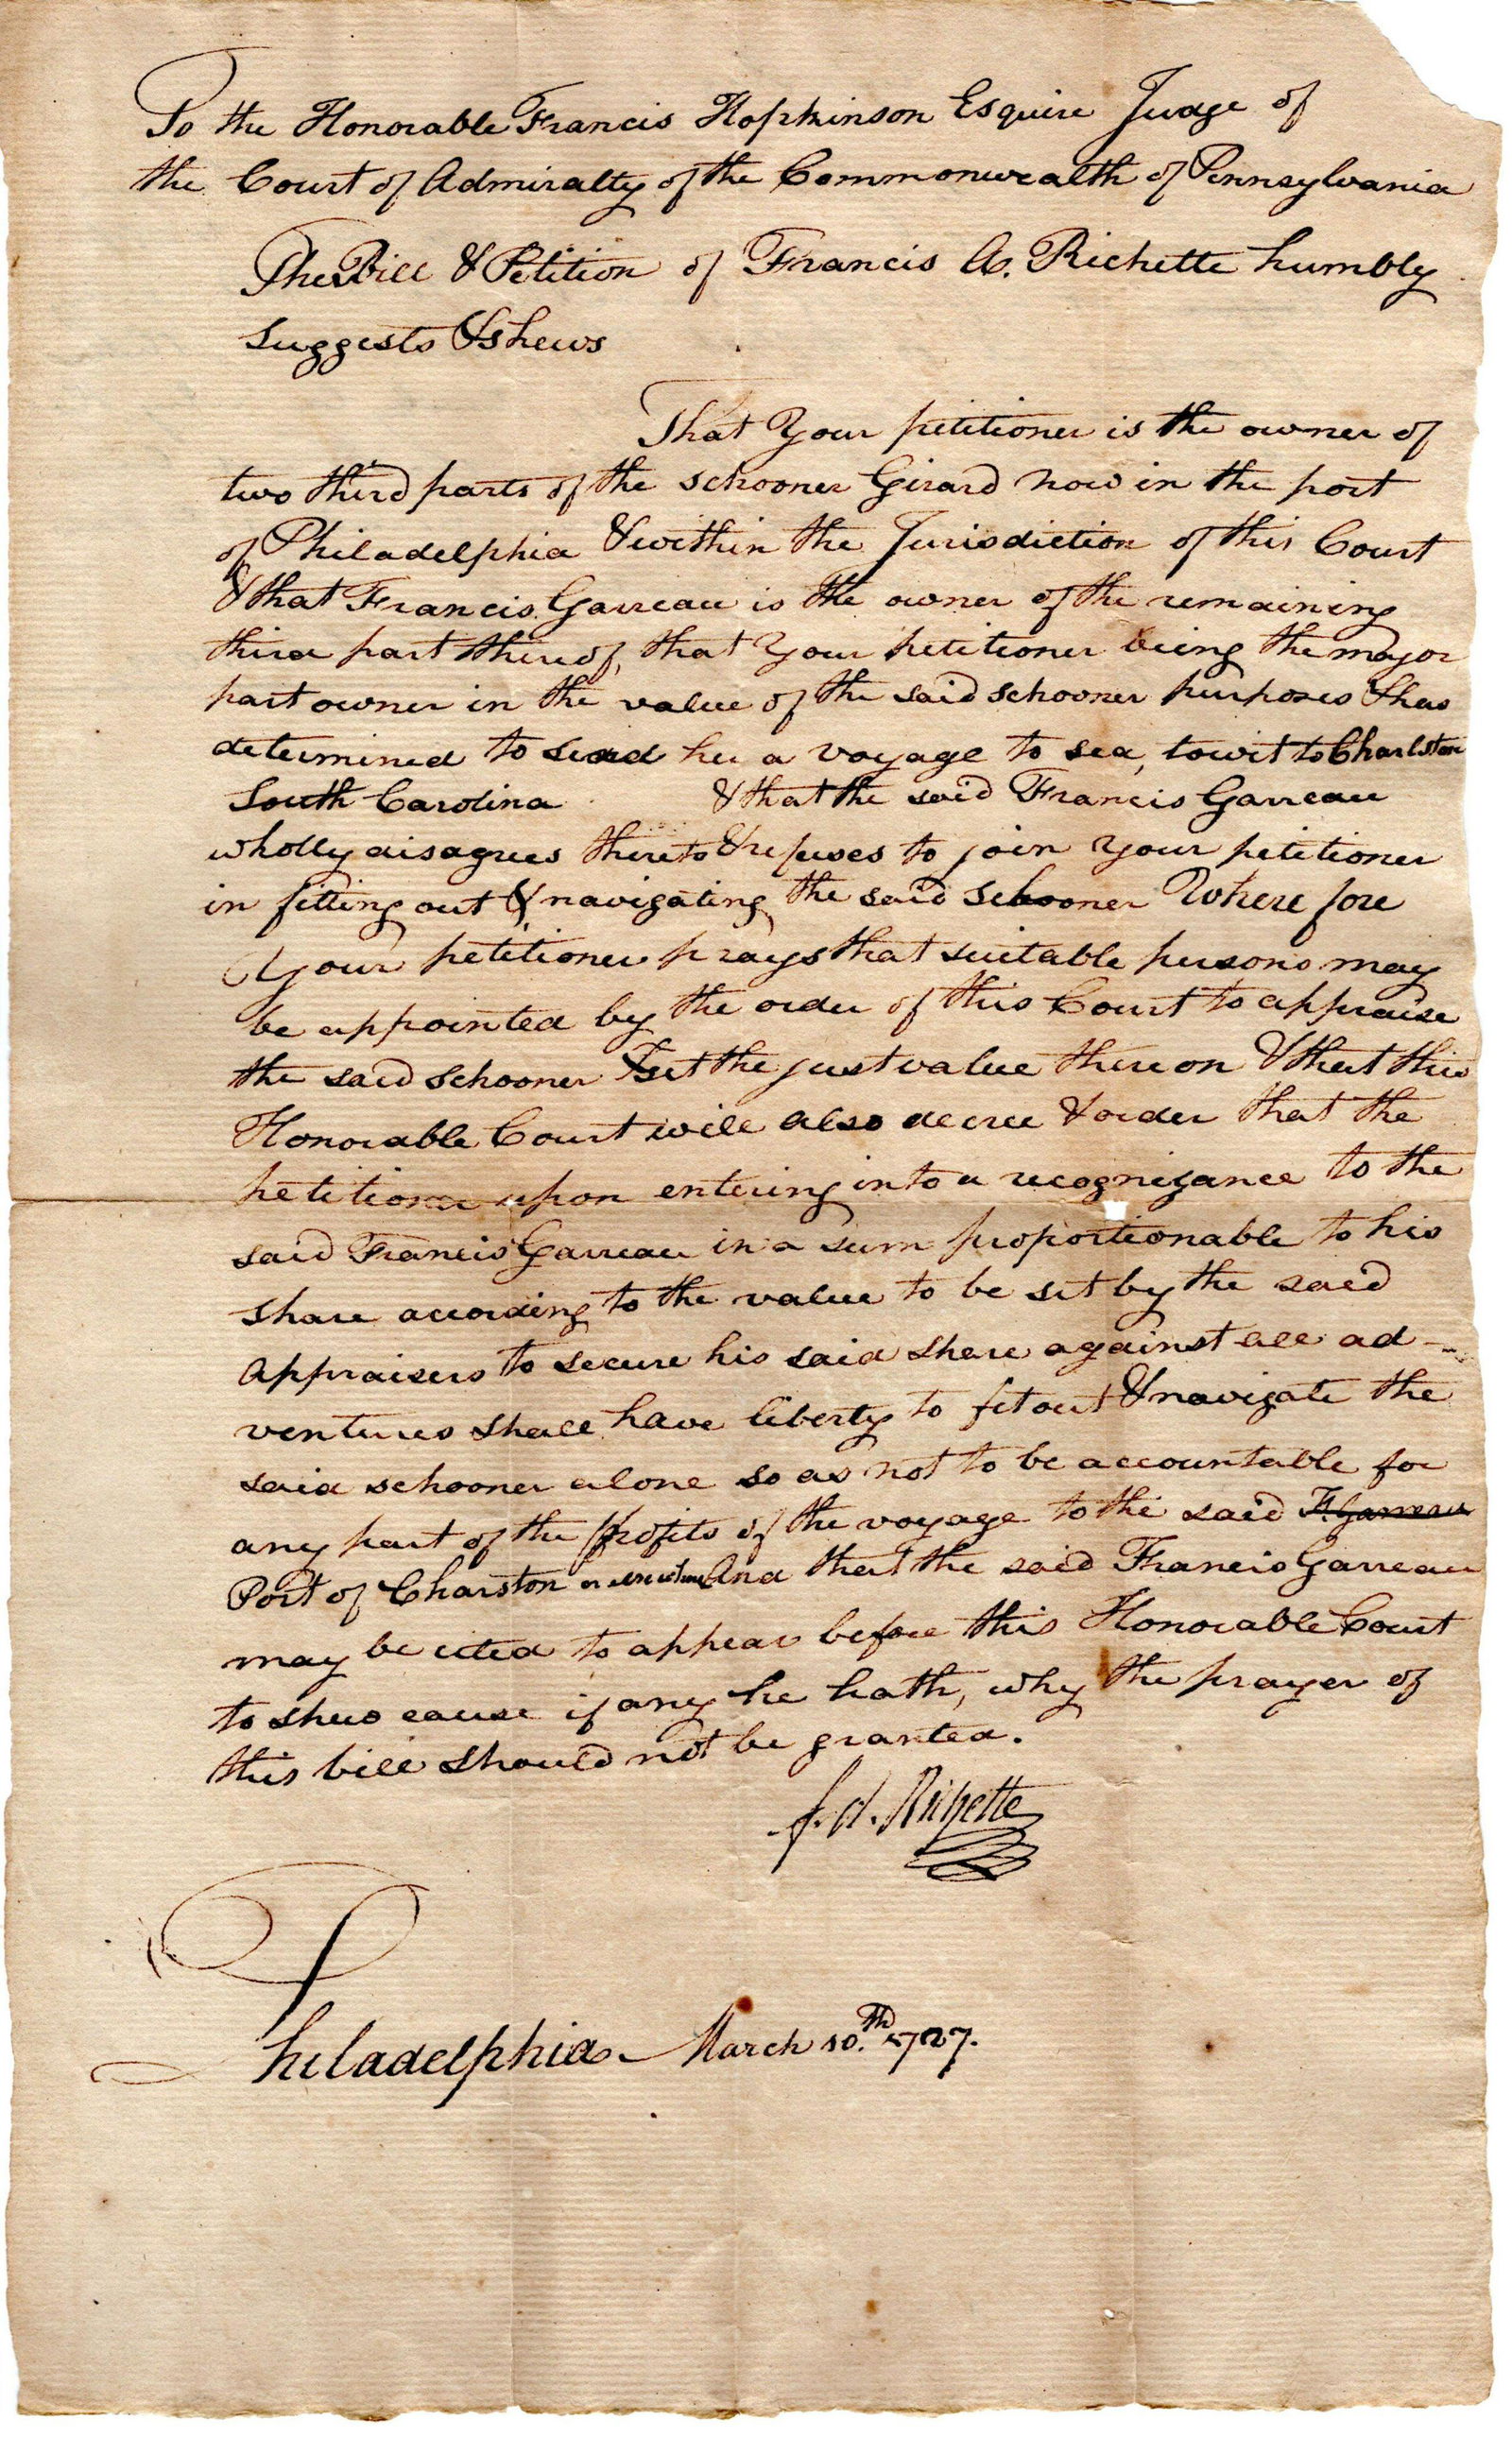 To the Honorable Francis Hopkinson Esquire Judge of
the Court of Admiralty of the Commonwealth of Pennsylvania
The Bill & Petition of Francis A. Richette humbly
Suggests & shews
That Your petitioner is the owner of
two third parts of the schooner Girard now in the port
of Philadelphia & within the Jurisdiction of this Court
& that Francis Garreau is the owner of the remaining
third part thereof, that Your petitioner being the major
part owner in the value of the said schooner purposes & has
determined to send her a voyage to sea, towit to Charlston
South Carolina & that the said Francis Garreau
wholly disagrees thereto & refuses to join Your petitioner
in fitting out & navigating the said schooner Where fore
Your petitioner prays that suitable persons may
be appointed by the order of this Court to appraise
the said schooner & set the just value thereon & that this
Honorable Court will also decree & order that the
petitioner upon entering into a recognizance to the
said Francis Garreau in a sum proportionable to his
share according to the value to be set by the said
Appraisers to secure his said share against all ad-
ventures shall have liberty to fit out & navigate the
said schooner alone so as not to be accountable for
any part of the profits of the voyage to the said F. Garreau
Port of Charston And that the said Francis Garreau
may be cited to appear before this Honorable Court
to shew cause if any he hath, why the prayer of
this bill should not be granted.
f. A. Richette
Philadelphia March 10.th 1787.